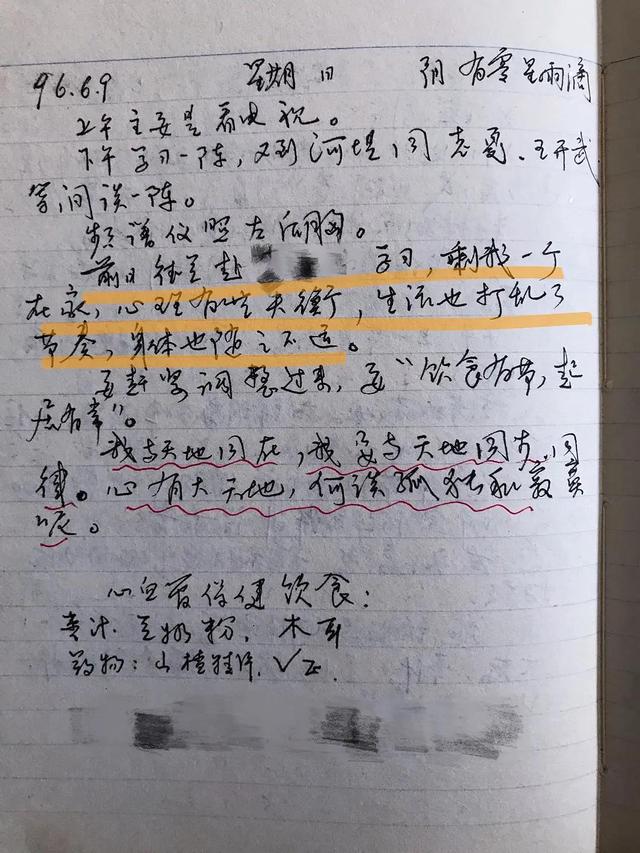 96.6.9 星期日 阴有零星雨滴
上午主要是看电视。
下午学习一阵，又到河堤同志勇、王开武
等闲谈一阵。
频谱仪照左后胸。
前日 赴 学习，剩我一个
在家，心理有些失衡，生活也打乱了
节奏，身体也随之不适。
要赶紧调整过来，要“饮食有节，起
居有常”。
我与天地同在，我要与天地同步、同
律。心有大天地，何谈孤独和寂寞
呢。
心血管保健饮食：
麦汁、豆奶粉、木耳
药物：山楂 片、VE.